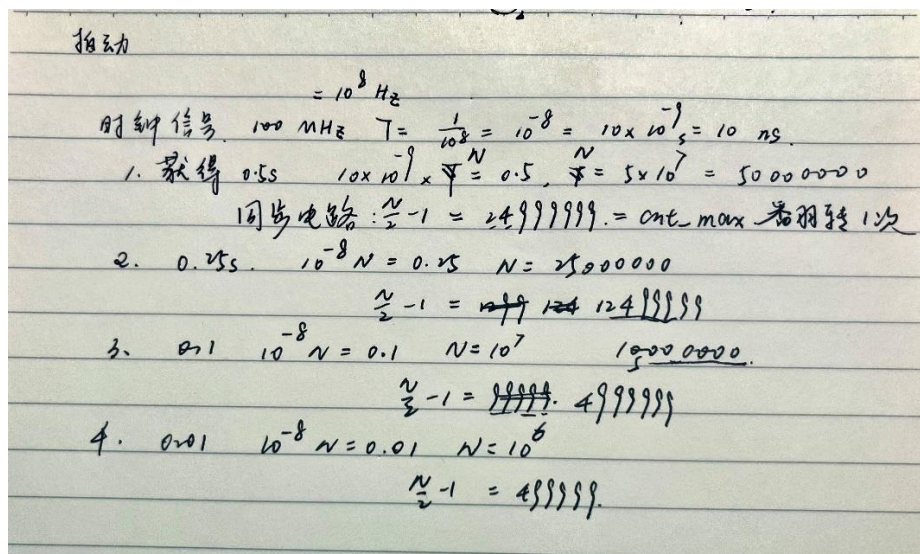 抖动
= 10⁸ Hz
时钟信号. 100 MHz T = 1/10⁸ = 10⁻⁸ = 10×10⁻⁹s = 10 ns.
1. 获得 0.5s 10×10⁻⁹ × N = 0.5, N = 5×10⁷ = 50000000
同步电路: N/2 -1 = 24999999. = cnt_max 翻转1次
2. 0.25s. 10⁻⁸ N = 0.25 N = 25000000
N/2 -1 = 12499999
3. 0.1 10⁻⁸ N = 0.1 N = 10⁷ 10000000.
N/2 -1 = 4999999
4. 0.01 10⁻⁸ N = 0.01 N = 10⁶
N/2 -1 = 499999.